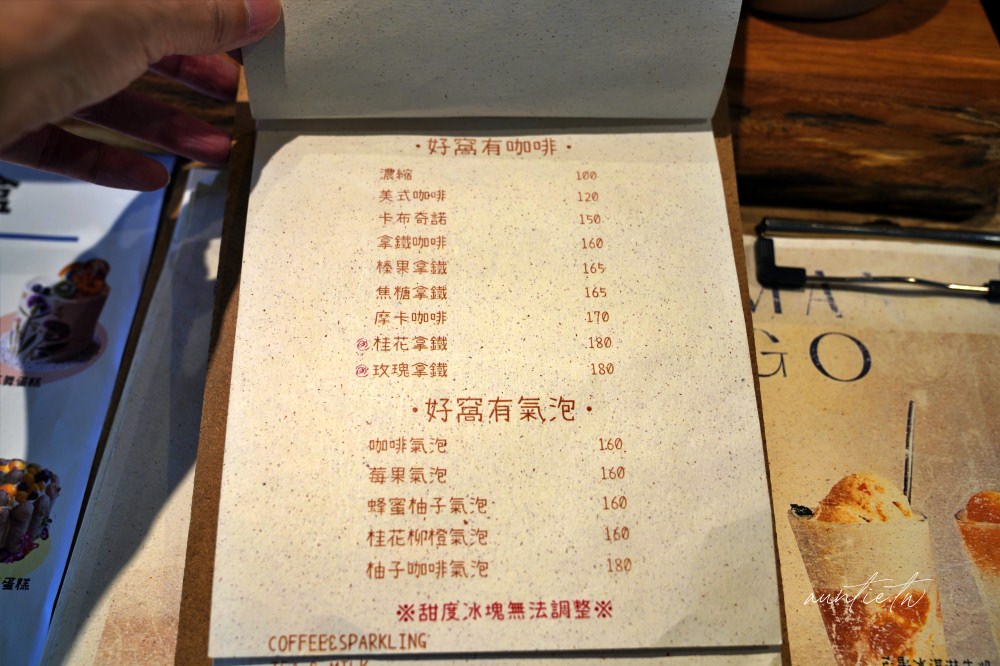 ·好窩有咖啡·
濃縮 100
美式咖啡 120
卡布奇諾 150
拿鐵咖啡 160
榛果拿鐵 165
焦糖拿鐵 165
摩卡咖啡 170
桂花拿鐵 180
玫瑰拿鐵 180
·好窩有氣泡·
咖啡氣泡 160
莓果氣泡 160
蜂蜜柚子氣泡 160
桂花柳橙氣泡 160
柚子咖啡氣泡 180
※甜度冰塊無法調整※
COFFEE&SPARKLING
蛋糕
蛋糕
MAN
GO
auntietw